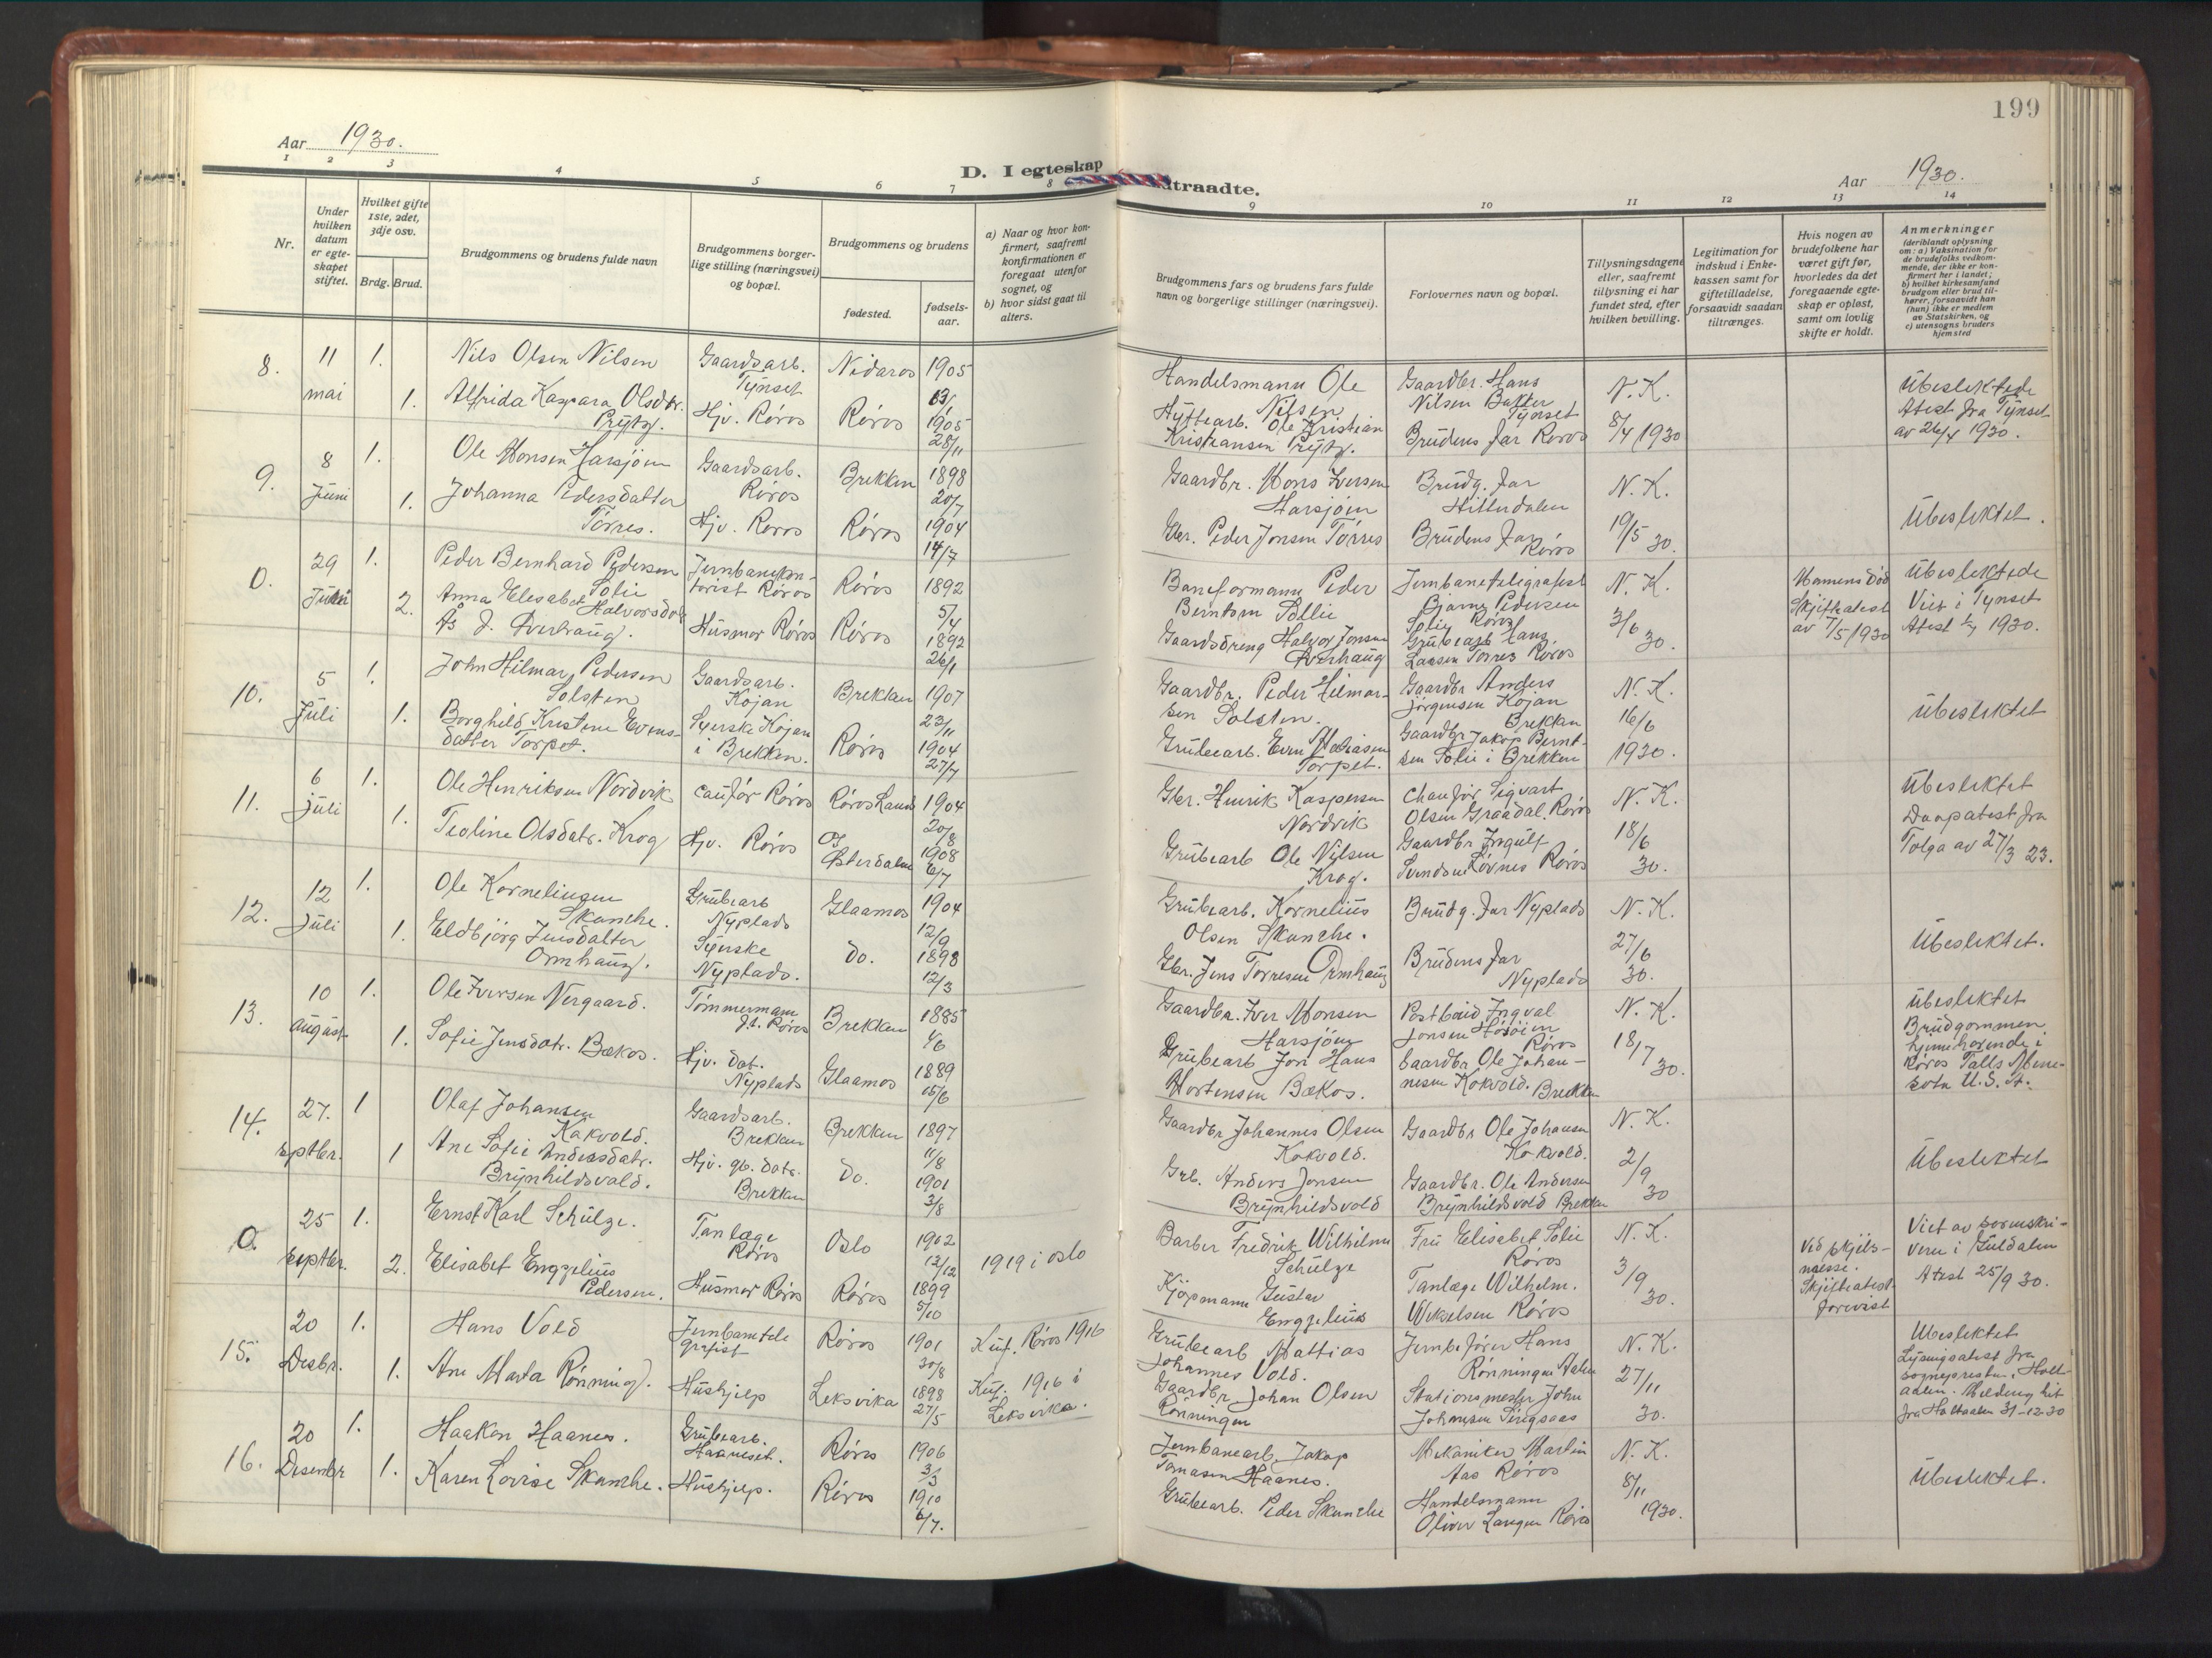 199
Aar 1930.
D. Iegteskap
dtraadte.
Aar 1930.
1 2 3 4 5 6 7 8 9 10 11 12 13 14
Nr.
Under hvilken datum er egte-skapet stiftet.
Hvilket gifte 1ste, 2det, 3dje osv.
Brdg. Brud.
Brudgommens og brudens fulde navn
Brudgommens borger-lige stilling (næringsvei) og bopæl.
Brudgommens og brudens
fødested.
fødsels-aar.
a) Naar og hvor kon-firmert, saafremt konfirmationen er foregaat utenfor sognet, og
b) hvor sidst gaat til alters.
Brudgommens fars og brudens fars fulde navn og borgerlige stillinger (næringsvei).
Forlovernes navn og bopæl.
Tillysningsdagene eller, saafremt tillysning ei har fundet sted, efter hvilken bevilling.
Legitimation for indskud i Enke-kassen samt for giftetilladelse, forsaavidt saadan tiltrænges.
Hvis nogen av brudefolkene har været gift før, hvorledes da det foregaaende egte-skap er opløst, samt om lovlig skifte er holdt.
Anmerkninger
(deriblandt oplysning om: a) Vaksination for de brudefolks vedkom-mende, der ikke er kon-firmert her i landet; b) hvilket kirkesamfund brudgom eller brud til-hører, forsaavidt han (hun) ikke er medlem av Statskirken, og c) utensogns bruders hjemsted
8. 11 mai 1. 1.
Nils Olsen Nilsen
Alfrida Kaspara Olsdtr. Prytz.
Gaardsarb. Tynset
Hjv. Røros
Nidaros 1905
Røros 1905 28/11
Handelsmann Ole Nilsen
Hyttearb. Ole Kristian Kristiansen Prytz.
Gaardbr. Hans Nilsen Bakker Tynset
Brudens far Røros
N. K. 8/4 1930
Ubeslektede
Atest fra Tynset av 26/4 1930.
9. 8 Juni 1. 1.
Ole Monsen Harsjøen
Johanna Pedersdatter Torres.
Gaardsarb. Røros
Hjv. Røros
Brekken 1898 20/7
Røros 1904 14/7
Gaardbr. Mons Iversen Harsjøen
Gbr. Peder Jonsen Torres
Brudg. far Hitterdalen
Brudens far Røros
N. K. 19/5 30.
Ubeslektet.
0. 29 Juni 1. 2.
Peder Bernhard Pedersen Solie
Anna Elisabet Halvorsdatr. Ås f. Overhaug.
Jernbanekon-torist Røros
Husmor Røros
Røros 1892 5/4
Røros 1892 26/1
Baneformann Peder Berntsen Sollie
Gaardsdreng Halvor Jonsen Overhaug
Jernbanetelegrafist Bjarne Pedersen Solie Røros
Grubearb Hans Larsen Torres Røros
N. K. 3/6 30.
Mannens død Skifteatest av 7/5 1930
Ubeslektede
Viet i Tynset
Atest 1930.
10. 5 Juli 1. 1.
John Hilmar Pedersen Solsten
Borghild Kristine Evens-datter Torpet.
Gaardsarb. Kojan
Syerske Kojan i Brekken.
Brekken 1907 23/11
Røros 1904 27/7
Gaardbr. Peder Hilmar-sen Solsten.
Grubearb. Even Tobiasen Torpet.
Gaardbr Anders Jørgensen Kojan Brekken
Gaardbr Jakop Bernt-sen Solie i Brekken
N. K. 16/6 1930.
Ubeslektet
11. 6 juli 1. 1.
Ole Henriksen Nordvik
Teoline Olsdatr. Krog
caufør Røros
Hjv. Røros
Røros Land 1904 20/8
Os Østerdalen 1908 6/7
Gbr. Henrik Kaspersen Nordvik
Grubearb Ole Nilsen Krog.
Chaufør Sigvart Olsen Graadal. Røros
Gaardbr Ingulf Svendsen Løvnes Røros
N. K. 18/6 30.
Ubeslektet
Daapatest fra Tolga av 27/3 23.
12. 12 Juli 1. 1.
Ole Korneliusen Skanche.
Eldbjørg Jensdatter Ormhaug.
Grubearb Nyplads
Syerske Nyplads.
Glaamos 1904 12/9
Do. 1898 12/3
Grubearb. Kornelius Olsen Skanche.
Gbr. Jens Torresen Ormhaug
Brudg. far Nyplads
Brudens far Nyplads
N. K. 27/6 30.
Ubeslektet.
13. 10 august 1. 1.
Ole Iversen Nergaard.
Sofie Jensdatr. Bækos.
Tømmermann Røros
Hjv. dat. Nyplads
Brekken 1885 4/6
Glaamos 1889 15/6
Gaardbr. Iver Monsen Harsjøen
Grubearb Jon Hans Mortensen Bækos.
Postbud Ingval Jonsen Høsøien Røros
Gaardbr Ole Johan-nesen Kokvold. Brekken
N. K. 18/7 30.
Ubeslektet
Brudgommen hjemehørende i Røros Falls Mine-sota U.S.A.
14. 27. septbr. 1 1
Olaf Johansen Kakvold.
Ane Sofie Andersdatr. Brynhildsvold.
Gaardsarb. Brekken
Hjv. gb. datr. Brekken
Brekken 1897 11/8
Do. 1901 3/8
Gaardbr Johannes Olsen Kokvold.
Grb. Anders Jonsen Brynhildsvold
Gaardbr Ole Johansen Kokvold.
Gaardbr. Ole Andersen Brynhildsvold Brekken
N. K. 2/9 30
Ubeslektet
0. 25 septbr. 1. 2.
Ernst Karl Schulze.
Elisabet Engzelius Pedersen.
Tanlæge Røros
Husmor Røros
Oslo 1902 12/12
Røros 1899 5/10
1919 i Oslo
Barber Fredrik Wilhelm Schulze
Kjøpmann Gustav Engzelius
Fru Elisabet Solie Røros
Tanlæge Wilhelm. Wekselsen Røros
N. K. 3/9 30.
Ved skjils-messe. Skjifteatest forevist
Viet av sorenskri-veren i Guldalen
Atest 25/9 30.
15. 20 Desbr. 1. 1.
Hans Vold
Ane Marta Rønning.
Jernbanetele grafist
Hushjelp
Røros 1901 30/8
Leksvika 1898 27/5
Kuf. Røros 1916
Kuf. 1916 i Leksvika.
Grubearb Mattias Johannes Vold.
Gaardbr Johan Olsen Rønningen
Jernbefører Hans Rønningen Aalen
Stationsmester John Johansen Singsaas
N. K. 27/11 30.
Ubeslektet
Lysingsatest fra sognepresten i Holt-aalen. Melding hit fra Holtaalen 31-12-30
16. 20 Desembr 1. 1.
Haakon Haanes.
Karen Lovise Skanche.
Grubearb. Haaneset.
Hushjelp.
Røros 1906 3/3
Røros 1910 6/7.
Jernbanearb. Jakop Tomasen Haanes.
Grubearb. Peder Skanche
Mekaniker Martin Aas Røros
Handelsmann Oliver Langen Røros
N. K. 8/11 1930.
Ubeslektet.